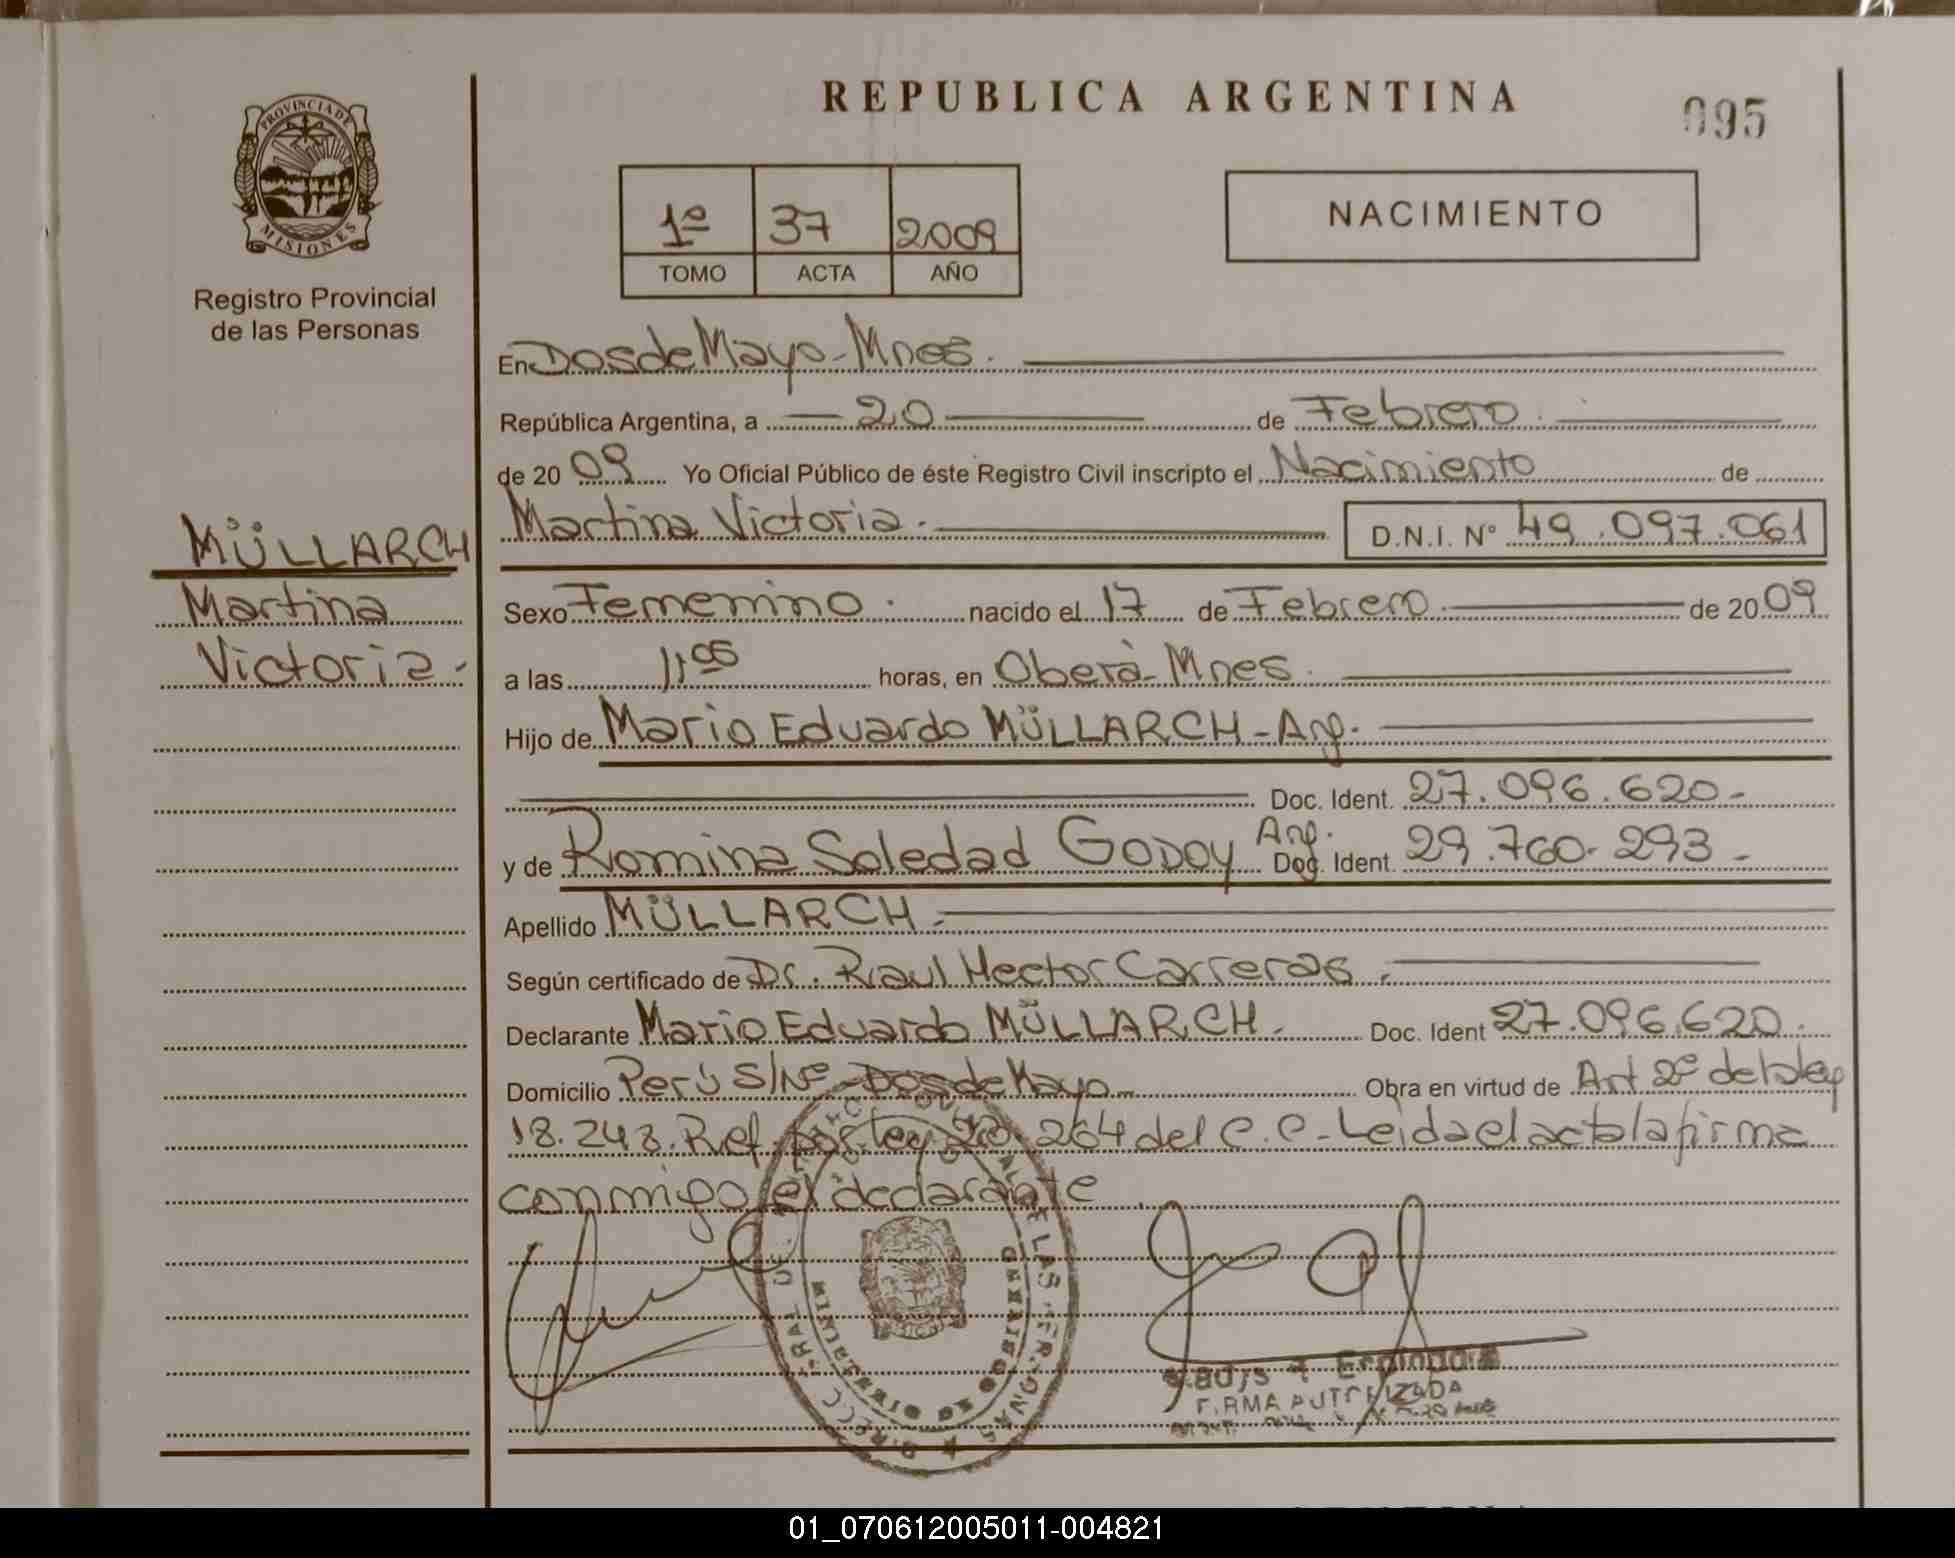 REPUBLICA ARGENTINA
095
PROVINCIA DE
MISIONES
Registro Provincial
de las Personas
1º 37 2009
TOMO ACTA AÑO
NACIMIENTO
En Dos de Mayo - Mnes.
República Argentina, a 20 de Febrero.
de 20 09 Yo Oficial Público de éste Registro Civil inscripto el Nacimiento de
Martina Victoria. D.N.I. Nº 49.097.061
MÜLLARCH
Martina
Victoria.
Sexo Femenino. nacido el 17 de Febrero. de 20 09
a las 11:05 horas, en Oberà - Mnes.
Hijo de Mario Eduardo MÜLLARCH - Arg.
Doc. Ident. 27.096.620-
y de Romina Soledad GODOY Arg. Doc. Ident. 29.760.293-
Apellido MÜLLARCH.
Según certificado de Dr. Raul Hector Carreras.
Declarante Mario Eduardo MÜLLARCH. Doc. Ident 27.096.620.
Domicilio Perú S/Nº - Dos de Mayo Obra en virtud de Art 2º de la ley
18.248. Ref. por ley 20. 264 del C.C. - Leida el acta la firma
conmigo el declarante
FIRMA AUTORIZADA
01_070612005011-004821